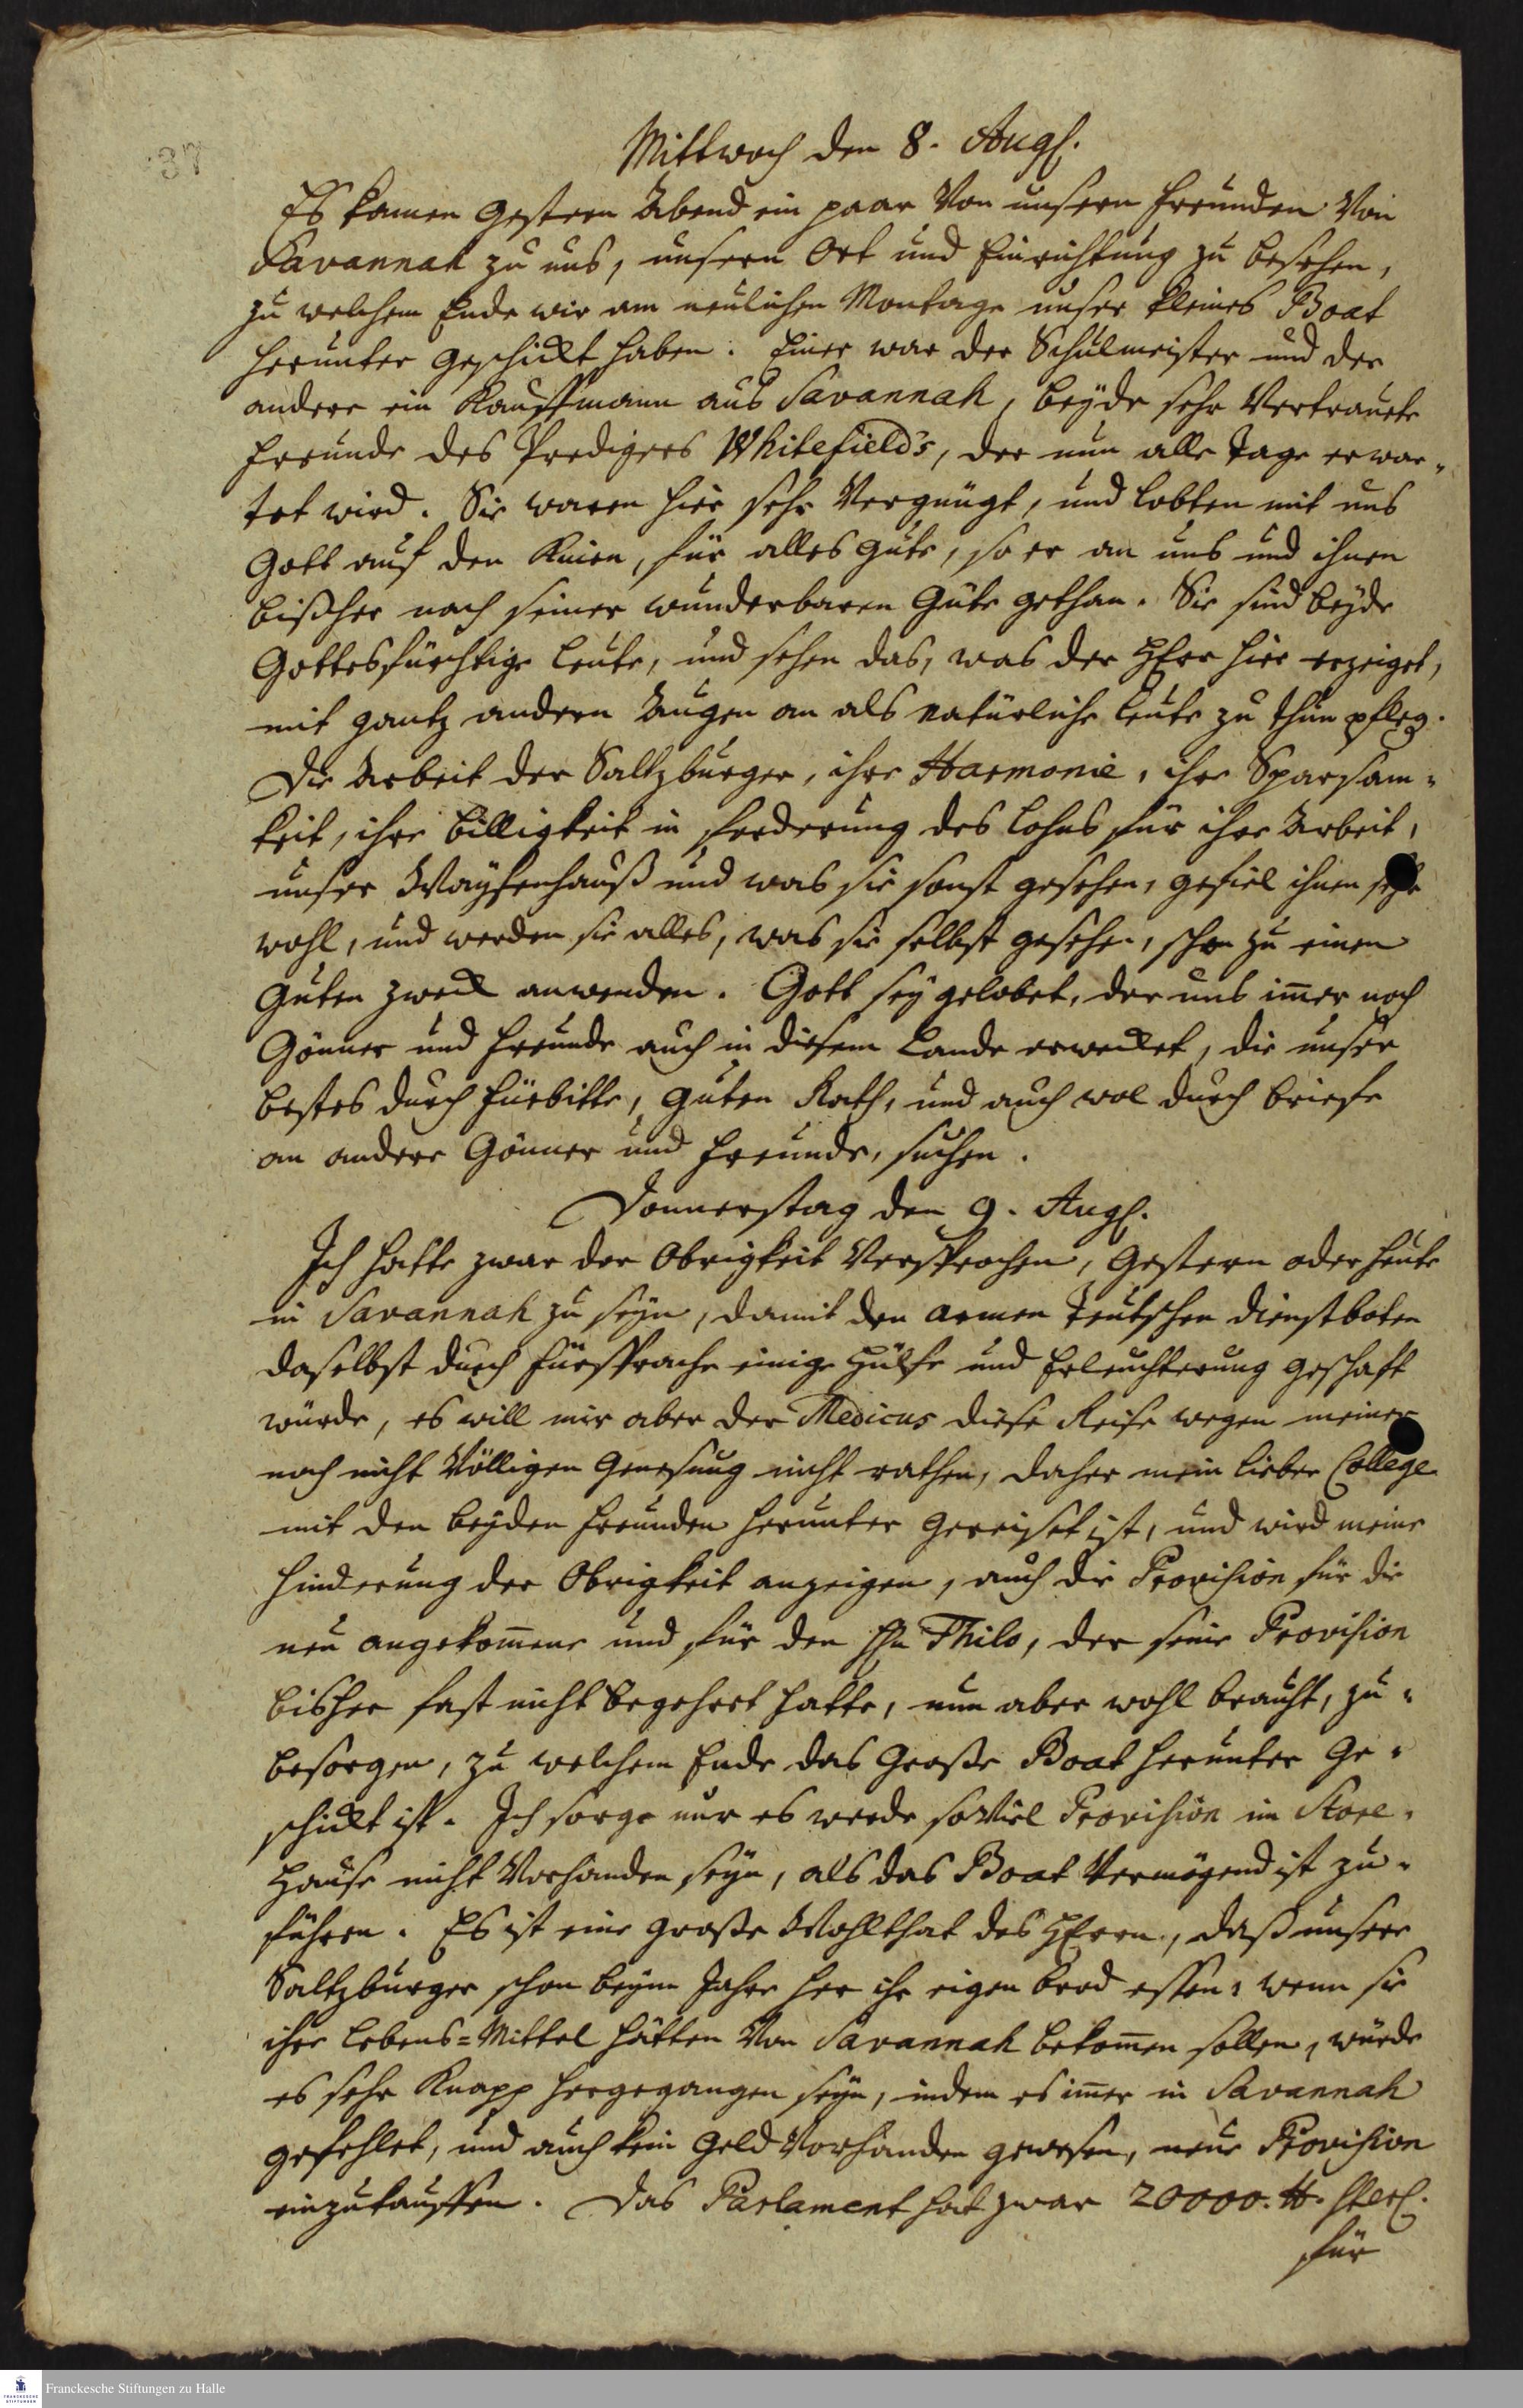 37
Mittwoch den 8. Augs.
Es kamen gestern Abend ein paar von unsern Freunden von
Savannah zu uns, unsern Ort und Einrichtung zu besehen,
zu welchem Ende wir am neulichen Montage unser kleines Boat
herunter geschickt haben. Einer war der Schulmeister und der
andere ein Kauffmann aus Savannah, beyde sehr vertraute
Freunde des Predigers Whitefield's, der nun alle Tage erwar-
tet wird. Sie waren hier sehr vergnügt, und lobten mit uns
Gott auf den Knien, für alles gute, so er an uns und ihnen
bißher nach seiner wunderbaren Güte gethan. Sie sind beyde
Gottesfürchtige Leute, und sehen das, was der HErr hier erzeiget,
mit gantz andern Augen an als natürliche Leute zu thun pfleg.
Die Arbeit der Saltzburger, ihre Harmonie, ihre Sparsam-
keit, ihre billigkeit in forderung des Lohns für ihre Arbeit,
unser Waysenhauß und was sie sonst gesehen, gefiel ihnen sehr
wohl, und werden sie alles, was sie selbst gesehen, schon zu einem
guten Zweck anwenden. Gott sey gelobet, der uns im̅er noch
Gönner und Freunde auch in diesem Lande erwecket, die unser
bestes durch Fürbitte, guten Rath, und auch wol durch briefe
an andere Gönner und Freunde, suchen.
Donnerstag den 9. Augs.
Ich hatte zwar der Obrigkeit versprochen, gestern oder heute
in Savannah zu seyn, damit den armen Teutschen Dienstboten
daselbst durch Fürsprache einige Hülfe und Erleuchterung geschaft
würde, es will mir aber der Medicus diese Reise wegen meiner
noch nicht völligen Genesung nicht rathen, daher mein lieber College
mit den beyden Freunden herunter gereiset ist, und wird meine
Hinderung der Obrigkeit anzeigen, auch die Provision für die
neu angekom̅ene und für den Hn Thilo, der seine Provision
bisher fast nicht begehrt hatte, nun aber wohl braucht, zu-
besorgen, zu welchem Ende das große Boat herunter ge-
schickt ist. Ich sorge nur es werde soviel Provision im Store-
Hause nicht vorhanden seyn, als das Boat vermögend ist zu-
führen. Es ist eine große Wohlthat des HErrn, daß unsere
Saltzburger schon beym Jahre her ihr eigen brod essen, wenn sie
ihre Lebens-Mittel hätten von Savannah bekom̅en sollen, würde
es sehr knapp hergegangen seyn, indem es im̅er in Savannah
gefehlet, und auch kein Geld vorhanden gewesen, neue Provision
einzukauffen. Das Parlament hat zwar 20000. ℔. Sterl.
für
Franckesche Stiftungen zu Halle